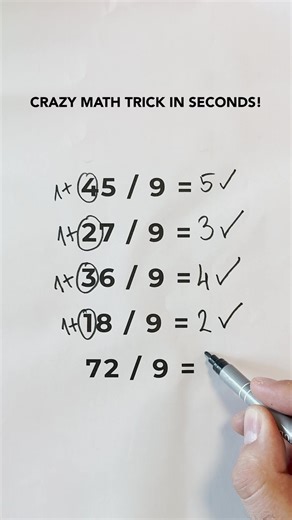 CRAZY MATH TRICK IN SECONDS!
1+45 / 9 = 5✓
1+27 / 9 = 3✓
1+36 / 9 = 4✓
1+18 / 9 = 2✓
72 / 9 =